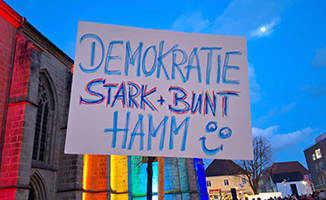 DEMOKRATIE
STARK + BUNT
HAMM